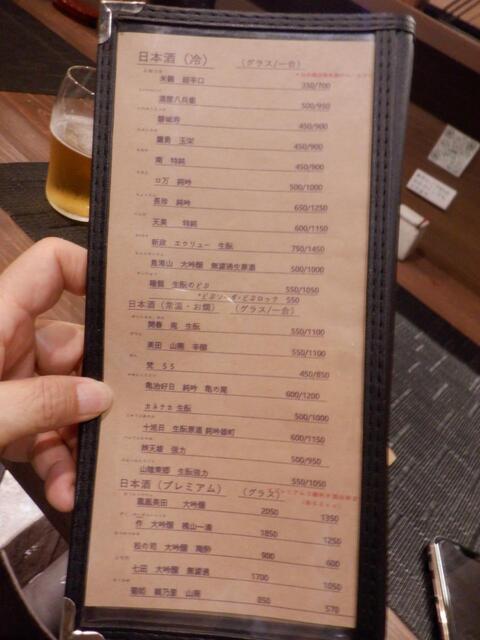 日本酒（冷）　（グラス/一合）
米鶴　超辛口　350/700
酒屋八兵衛　500/950
磐城寿　450/900
鷹勇　玉栄　450/900
南　特純　450/900
ロ万　純吟　500/1000
長珍　純吟　650/1250
天美　特純　600/1150
新政　エクリュー　生酛　750/1450
鳥海山　大吟醸　無濾過生原酒　500/1000
睡龍　生酛のどぶ　550/1050
*どぶソーダ・どぶロック　550
日本酒（常温・お燗）　（グラス/一合）
開春　生酛　550/1100
美田　山廃　辛醸　550/1100
梵　55　450/850
亀治好日　純吟　亀の尾　600/1200
カネナカ 生酛　500/1000
十旭日　生原酒 純吟　600/1150
辨天娘　強力　500/950
山陰東郷　生酛強力　550/1050
日本酒（プレミアム）　（グラス）
鳳凰美田　大吟醸　2050　1350
作　大吟醸　槐山一滴　1850　1250
松の司　大吟醸　陶酔　900　600
七田　大吟醸　無濾過　1700　1050
菊姫　鶴乃里　山廃　850　570